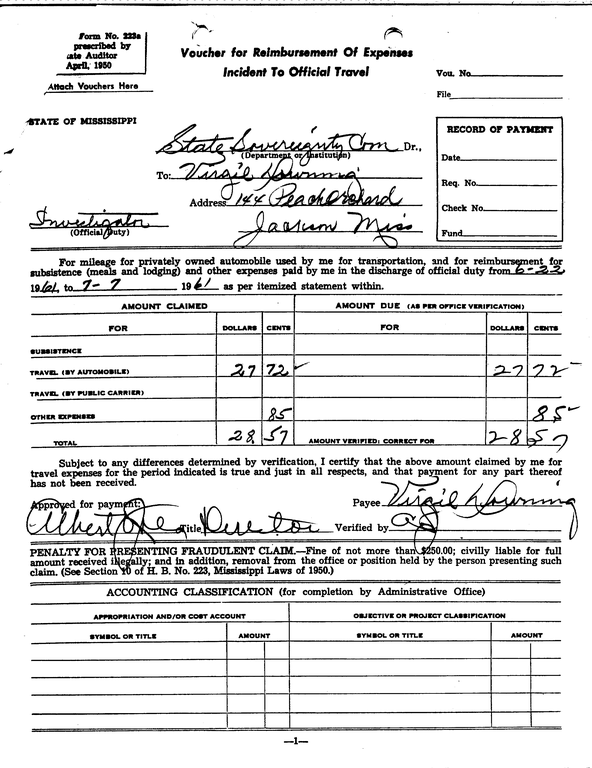 Form No. 223a
prescribed by
ate Auditor
April, 1950
Attach Vouchers Here
Voucher for Reimbursement Of Expenses
Incident To Official Travel
Vou. No.
File
STATE OF MISSISSIPPI
State Sovereignty Com Dr.,
(Department or Institution)
To: Virgil Downing
Address 144 Peach Orchard
Jackson Miss
Investigator
(Official Duty)
RECORD OF PAYMENT
Date
Req. No.
Check No.
Fund
For mileage for privately owned automobile used by me for transportation, and for reimbursement for
subsistence (meals and lodging) and other expenses paid by me in the discharge of official duty from 6-22
1961, to 7-7 1961 as per itemized statement within.
AMOUNT CLAIMED AMOUNT DUE (AS PER OFFICE VERIFICATION)
FOR DOLLARS CENTS FOR DOLLARS CENTS
SUBSISTENCE
TRAVEL (BY AUTOMOBILE) 27 72 27 72
TRAVEL (BY PUBLIC CARRIER)
OTHER EXPENSES 85 85
TOTAL 28 57 AMOUNT VERIFIED; CORRECT FOR 28 57
Subject to any differences determined by verification, I certify that the above amount claimed by me for
travel expenses for the period indicated is true and just in all respects, and that payment for any part thereof
has not been received.
Approved for payment: Payee Virgil Downing
Albert Title Director Verified by
PENALTY FOR PRESENTING FRAUDULENT CLAIM.—Fine of not more than $250.00; civilly liable for full
amount received illegally; and in addition, removal from the office or position held by the person presenting such
claim. (See Section 10 of H. B. No. 223, Mississippi Laws of 1950.)
ACCOUNTING CLASSIFICATION (for completion by Administrative Office)
APPROPRIATION AND/OR COST ACCOUNT OBJECTIVE OR PROJECT CLASSIFICATION
SYMBOL OR TITLE AMOUNT SYMBOL OR TITLE AMOUNT
—1—